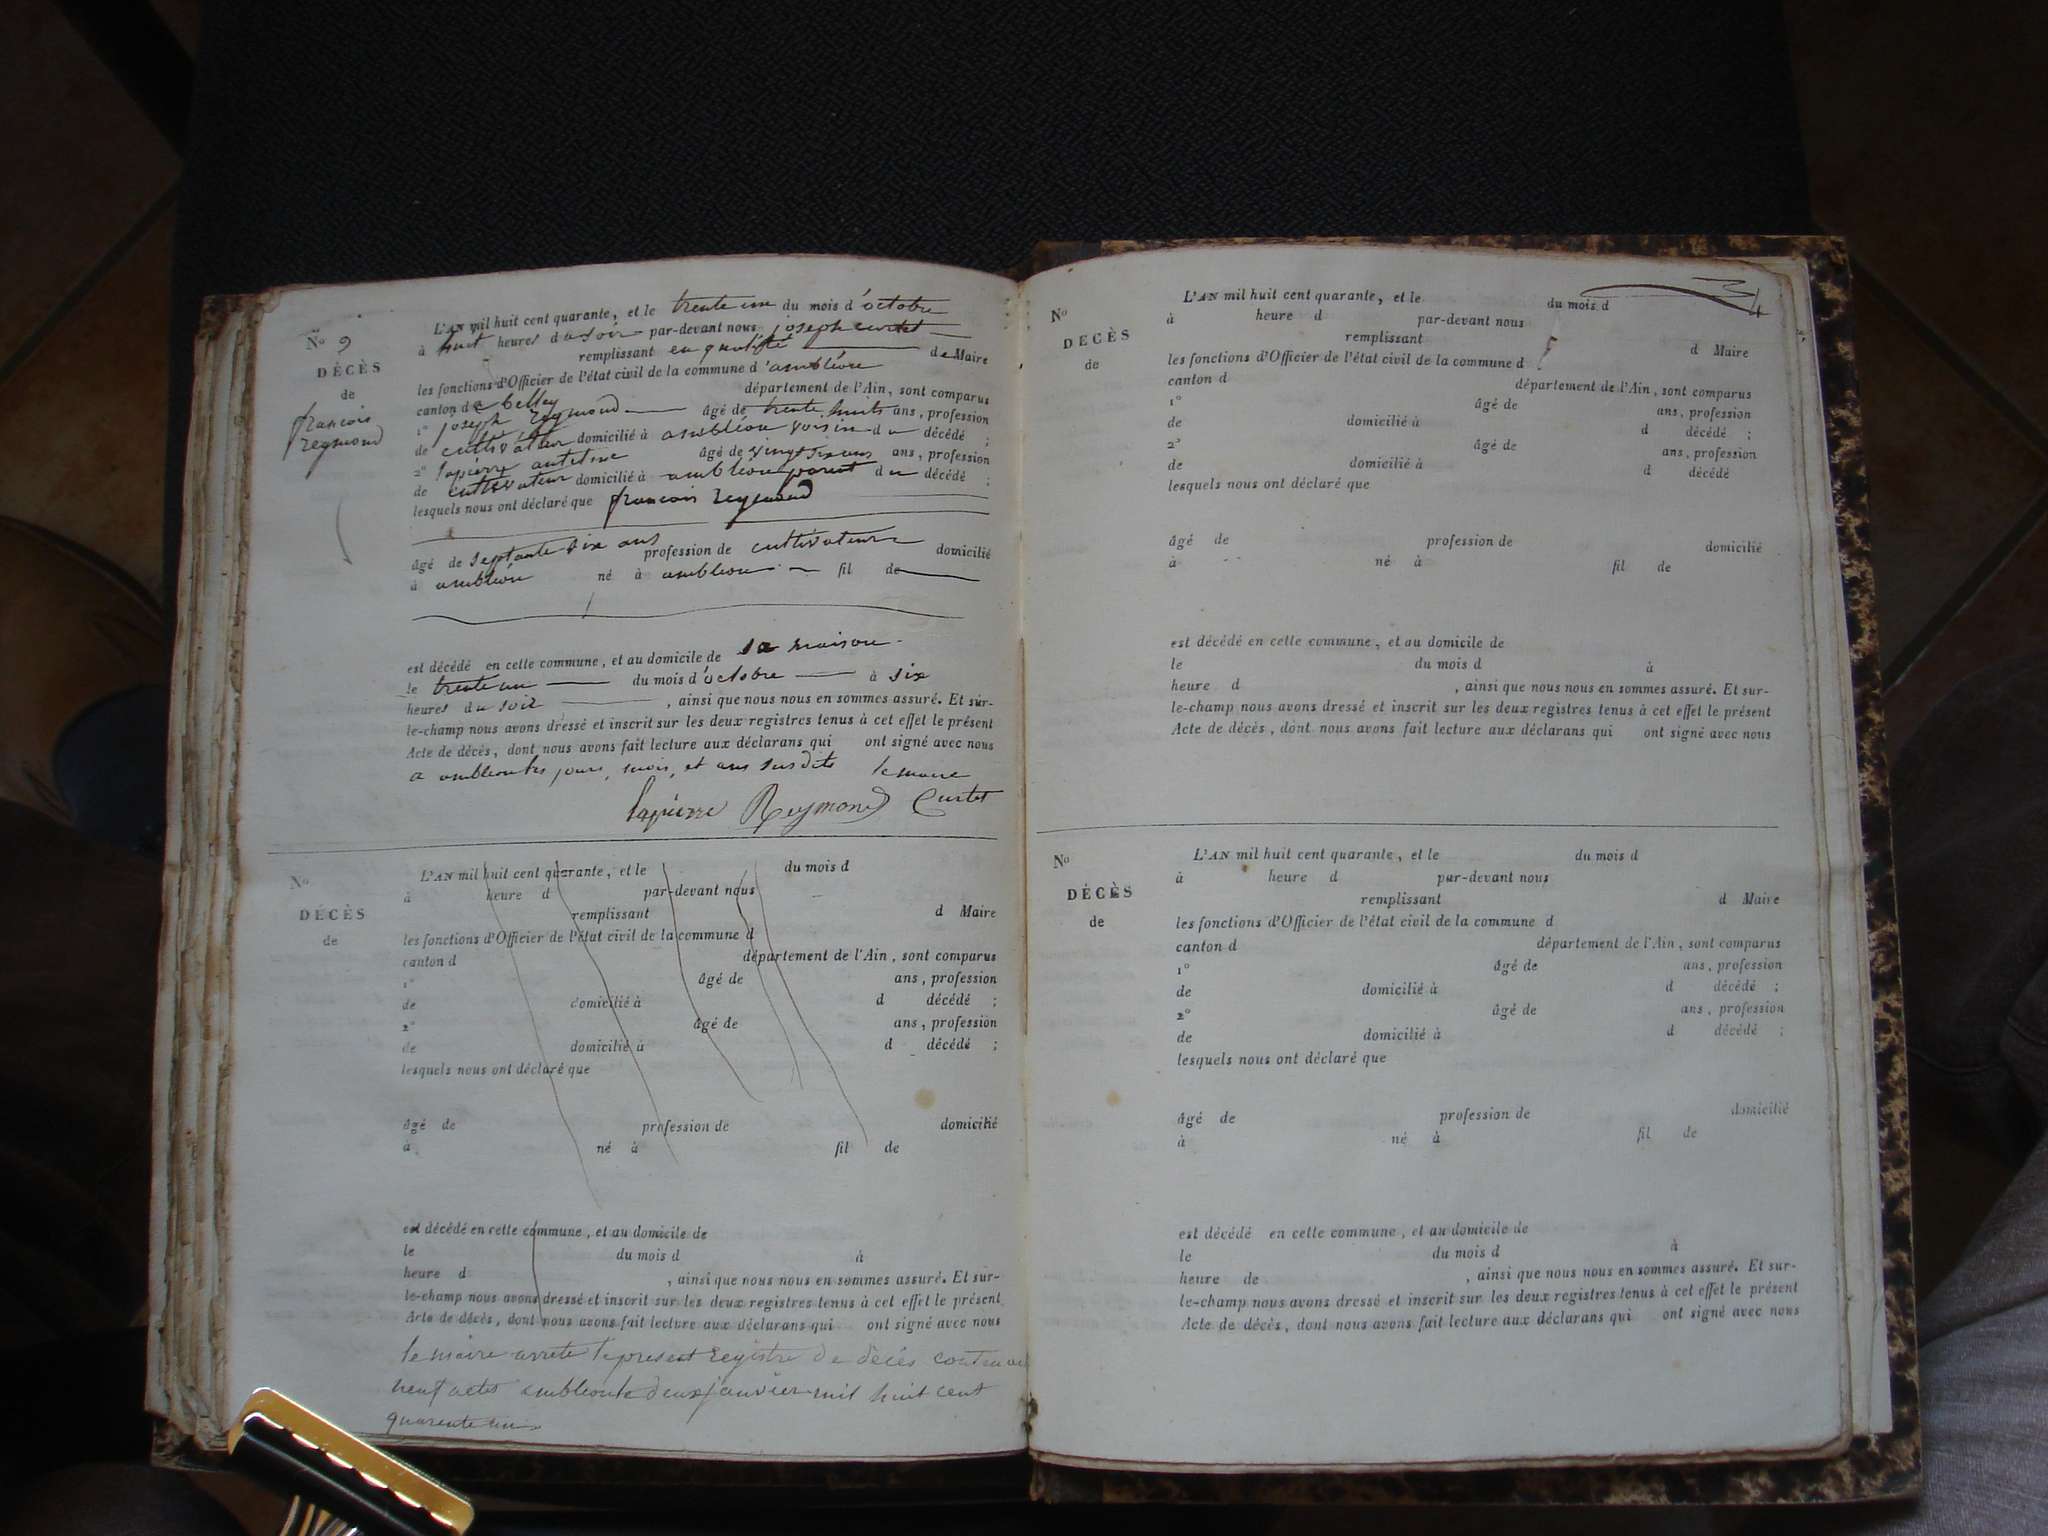 No 9
DÉCÈS
de
françois
reymond
L'AN mil huit cent quarante, et le trente un du mois d'octobre
à huit heures du soir par-devant nous joseph curtet
remplissant en qualité de Maire
les fonctions d'Officier de l'état civil de la commune d'ambléon
canton de belley département de l'Ain, sont comparus
1° joseph reymond âgé de trente huits ans, profession
de cultivateur domicilié à ambléon voisin du décédé ;
2° lapierre antelme âgé de vingt six ans ans, profession
de cultivateur domicilié à ambléon parent du décédé ;
lesquels nous ont déclaré que françois reymond
âgé de septante six ans profession de cultivateur domicilié
à ambléon né à ambleon fil de
est décédé en cette commune, et au domicile de sa maison
le trente un du mois d'octobre à six
heures du soir , ainsi que nous nous en sommes assuré. Et sur-
le-champ nous avons dressé et inscrit sur les deux registres tenus à cet effet le présent
Acte de décès, dont nous avons fait lecture aux déclarans qui ont signé avec nous
a ambleon les jours, mois, et ans susdits le maire
lapierre Reymond Curtet
No
DÉCÈS
de
L'AN mil huit cent quarante, et le du mois d
à heure d par-devant nous
remplissant d Maire
les fonctions d'Officier de l'état civil de la commune d
canton d département de l'Ain, sont comparus
1° âgé de ans, profession
de domicilié à d décédé ;
2° âgé de ans, profession
de domicilié à d décédé ;
lesquels nous ont déclaré que
âgé de profession de domicilié
à né à fil de
est décédé en cette commune, et au domicile de
le du mois d à
heure d , ainsi que nous nous en sommes assuré. Et sur-
le-champ nous avons dressé et inscrit sur les deux registres tenus à cet effet le présent
Acte de décès, dont nous avons fait lecture aux déclarans qui ont signé avec nous
le maire arrete le present registre de décés contenant
neuf actes ambleon le deux janvier mil huit cent
quarente un
34
No
DECÈS
de
L'AN mil huit cent quarante, et le du mois d
à heure d par-devant nous
remplissant d Maire
les fonctions d'Officier de l'état civil de la commune d
canton d département de l'Ain, sont comparus
1° âgé de ans, profession
de domicilié à d décédé ;
2° âgé de ans, profession
de domicilié à d décédé
lesquels nous ont déclaré que
âgé de profession de domicilié
à né à fil de
est décédé en cette commune, et au domicile de
le du mois d à
heure d , ainsi que nous nous en sommes assuré. Et sur-
le-champ nous avons dressé et inscrit sur les deux registres tenus à cet effet le présent
Acte de décès, dont nous avons fait lecture aux déclarans qui ont signé avec nous
No
DÉCÈS
de
L'AN mil huit cent quarante, et le du mois d
à heure d par-devant nous
remplissant d Maire
les fonctions d'Officier de l'état civil de la commune d
canton d département de l'Ain, sont comparus
1° âgé de ans, profession
de domicilié à d décédé ;
2° âgé de ans, profession
de domicilié à d décédé ;
lesquels nous ont déclaré que
âgé de profession de domicilié
à né à fil de
est décédé en cette commune, et au domicile de
le du mois d à
heure de , ainsi que nous nous en sommes assuré. Et sur-
le-champ nous avons dressé et inscrit sur les deux registres tenus à cet effet le présent
Acte de décès, dont nous avons fait lecture aux déclarans qui ont signé avec nous